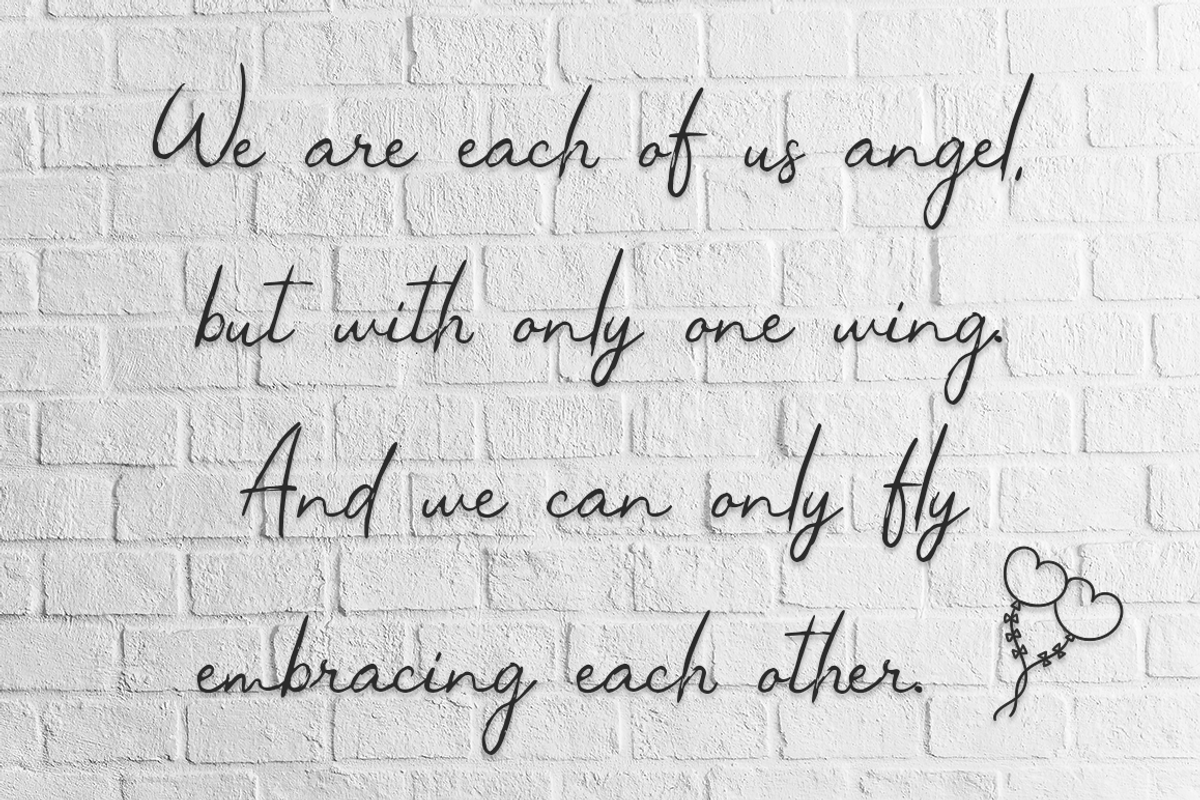 We are each of us angel,
but with only one wing.
And we can only fly
embracing each other.